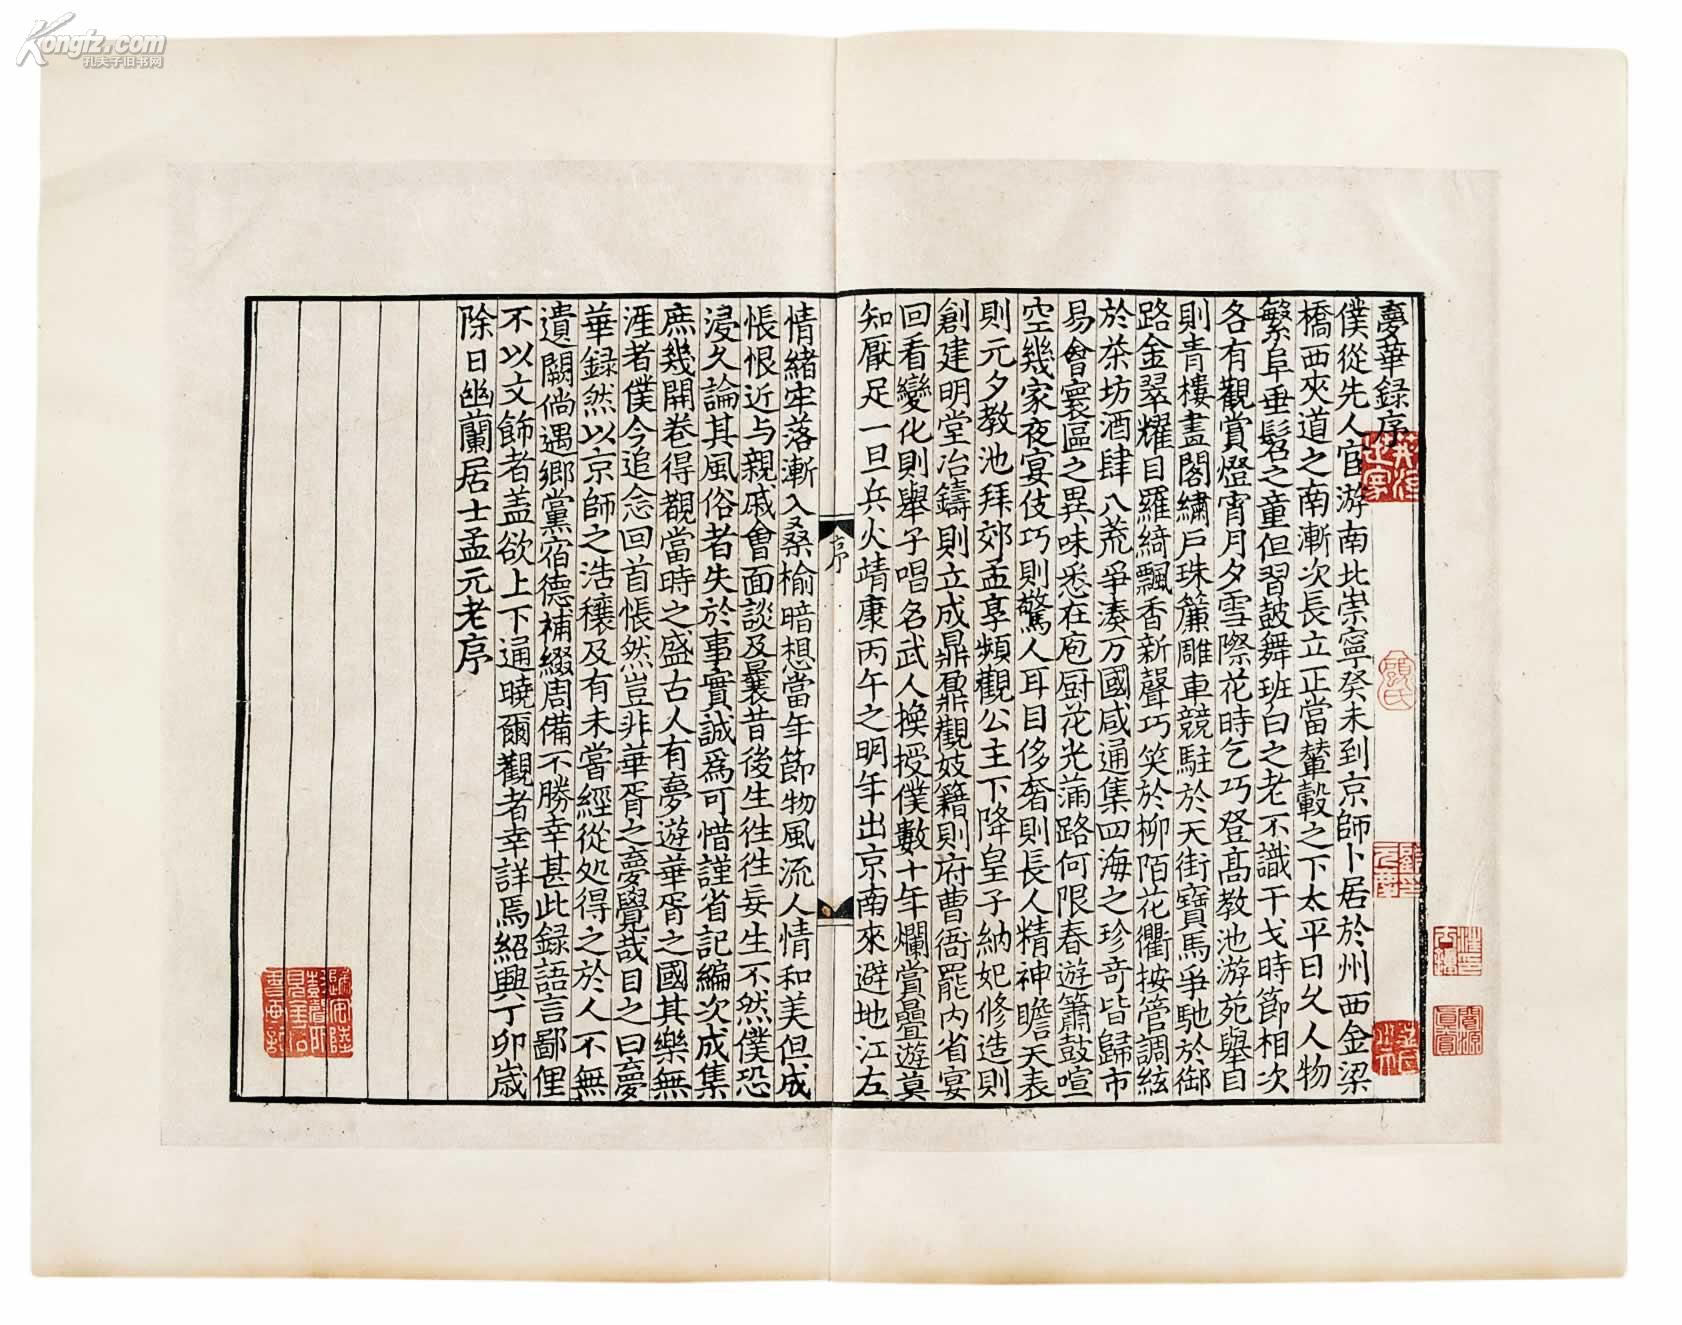 Kongfz.com
孔夫子旧书网
夢華録序
僕從先人宦游南北崇寧癸未到京師卜居於州西金梁
橋西夾道之南漸次長立正當輦轂之下太平日久人物
繁阜垂髫之童但習鼓舞班白之老不識干戈時節相次
各有觀賞燈宵月夕雪際花時乞巧登髙教池游苑舉目
則青樓畫閣繡戶珠簾雕車競駐於天街寶馬爭馳於御
路金翠耀目羅綺飄香新聲巧笑於柳陌花衢按管調絃
於茶坊酒肆八荒爭湊万國咸通集四海之珍竒皆歸市
易會寰區之異味悉在庖厨花光蒲路何限春遊簫鼓喧
空幾家夜宴伎巧則驚人耳目侈奢則長人精神瞻天表
則元夕教池拜郊孟享頻觀公主下降皇子納妃修造則
創建明堂冶鑄則立成鼎鼐觀妓籍則府曹衙罷内省宴
回看變化則舉子唱名武人換授僕數十年爛賞疊遊莫
知厭足一旦兵火靖康丙午之明年出京南來避地江左
序
情緒牢落漸入桑榆暗想當年節物風流人情和美但成
悵恨近与親戚會面談及曩昔後生往往妄生不然僕恐
浸久論其風俗者失於事實誠爲可惜謹省記編次成集
庶幾開卷得覩當時之盛古人有夢遊華胥之國其樂無
涯者僕今追念回首悵然豈非華胥之夢覺哉目之曰夢
華録然以京師之浩穰及有未嘗經從処得之於人不無
遺闕倘遇鄉黨宿德補綴周備不勝幸甚此録語言鄙俚
不以文飾者盖欲上下通曉爾觀者幸詳焉紹興丁卯歲
除日幽蘭居士孟元老序
顧氏